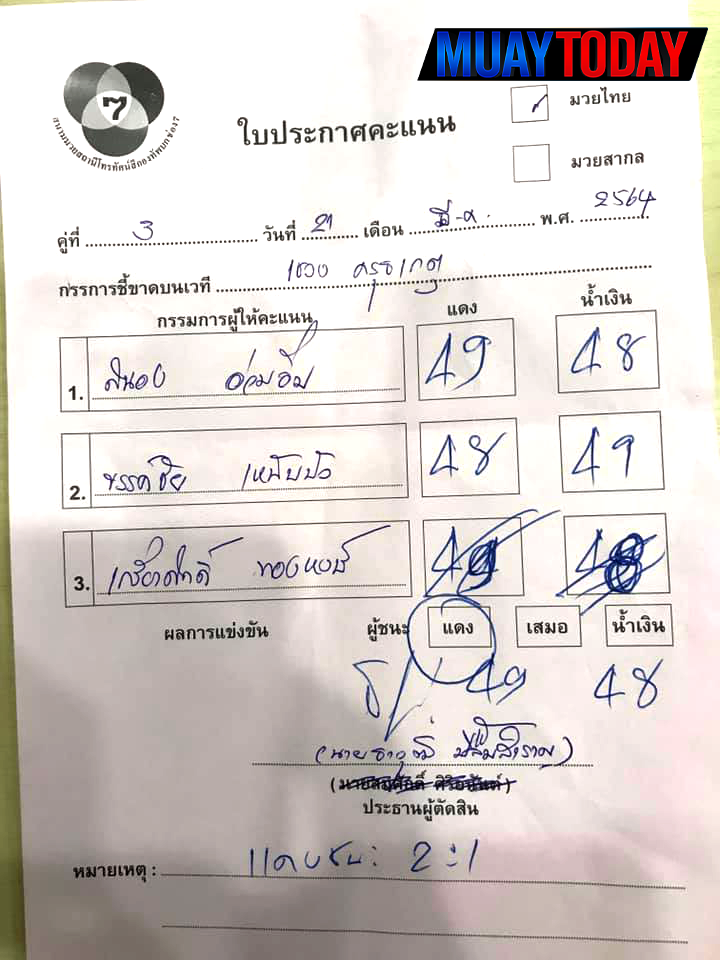 MUAYTODAY
7
สนามมวยสถานีโทรทัศน์สีกองทัพบกช่อง7
ใบประกาศคะแนน
มวยไทย
มวยสากล
คู่ที่ 3 วันที่ 21 เดือน มี.ค. พ.ศ. 2564
กรรการชี้ขาดบนเวที
กรรมการผู้ให้คะแนน แดง น้ำเงิน
1. สนอง อ่วมอิ่ม 49 48
2. 48 49
3. เกรียงศักดิ์ ทองหงษ์ 49 48
ผลการแข่งขัน ผู้ชนะ แดง เสมอ น้ำเงิน
49 48
ประธานผู้ตัดสิน
หมายเหตุ : แดงชนะ 2:1